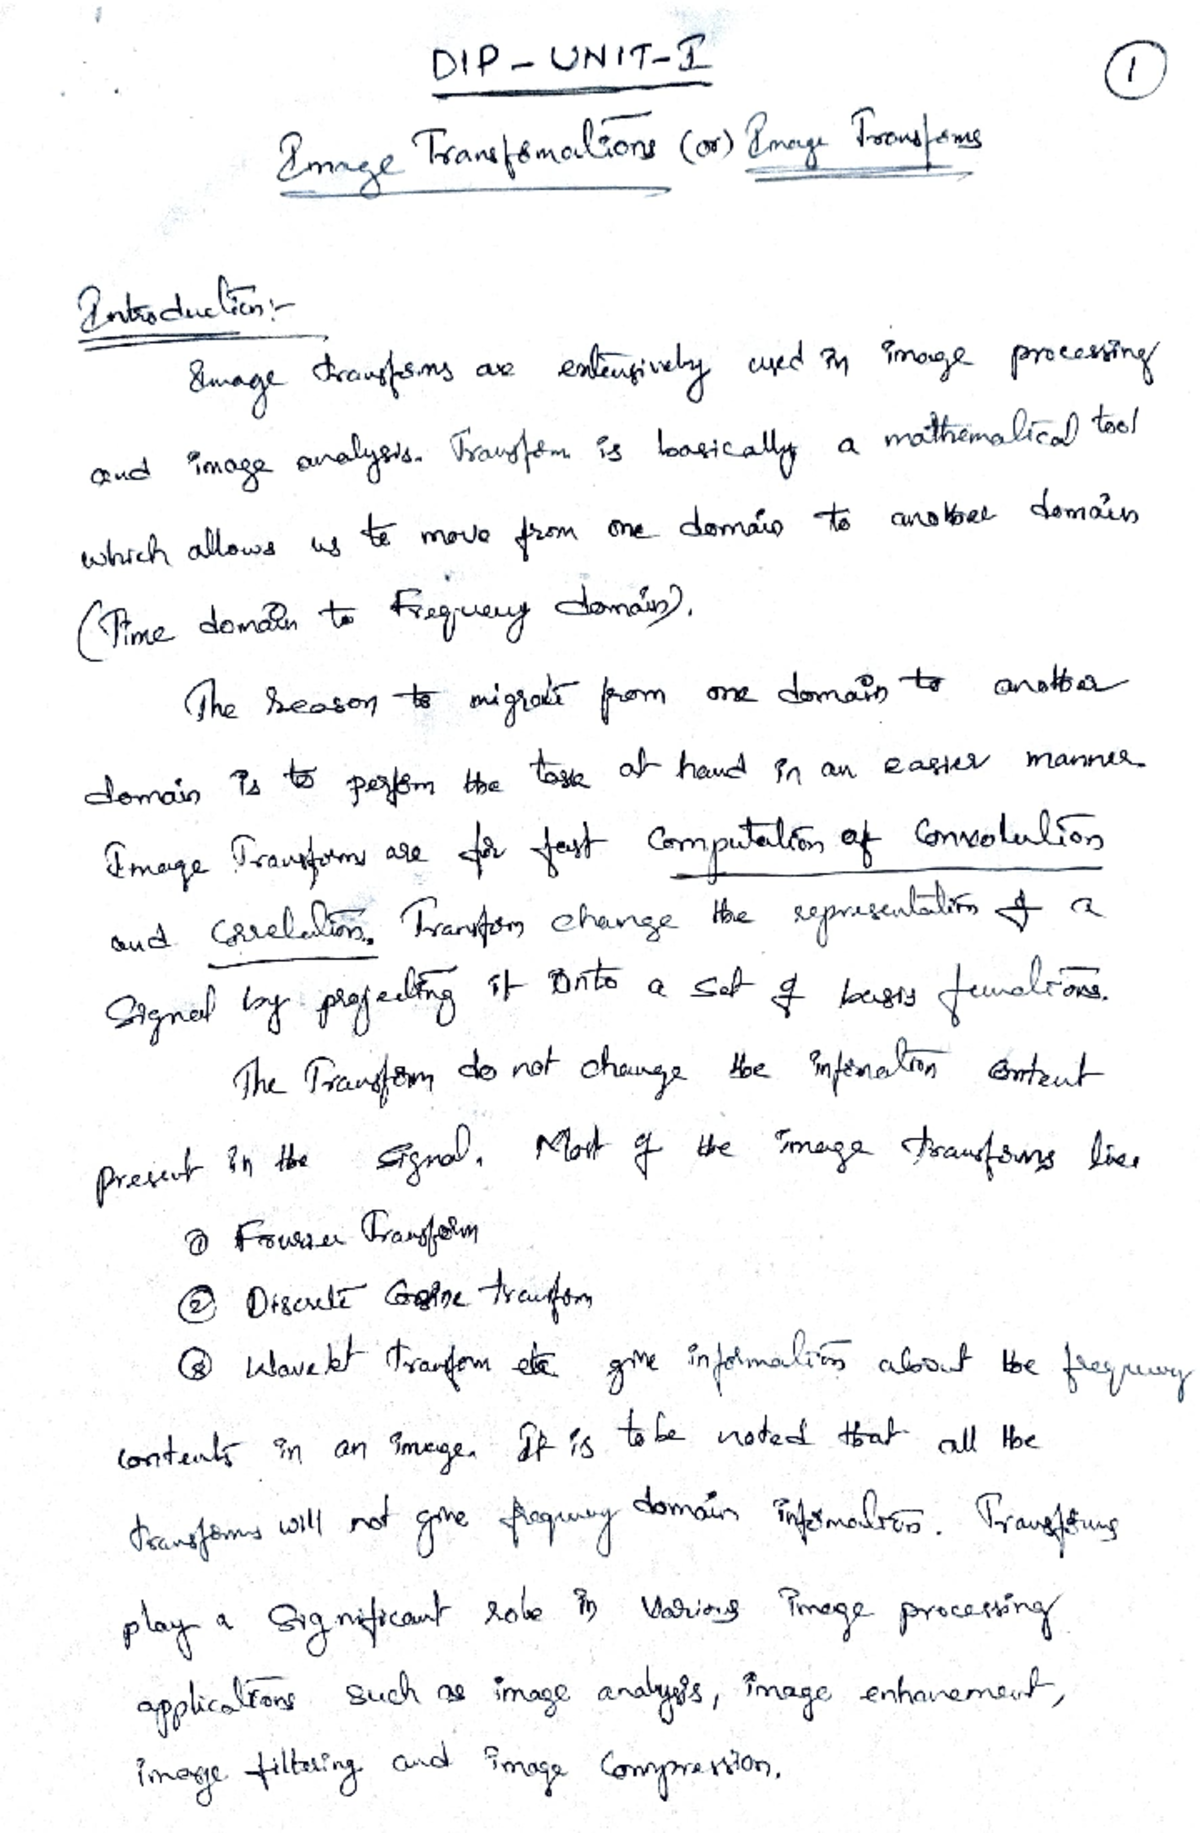 DIP - UNIT-I
1
Image Transformations (or) Image Transforms
Introduction:-
Image transforms are extensively used in image processing
and image analysis. Transform is basically a mathematical tool
which allows us to move from one domain to another domain
(Time domain to Frequency domain).
The reason to migrate from one domain to another
domain is to perform the task at hand in an easier manner.
Image Transforms are for fast Computation of Convolution
and Correlation. Transform change the representation of a
Signal by projecting it onto a set of basis functions.
The Transform do not change the information content
present in the signal. Most of the image transforms like
① Fourier Transform
② Discrete Cosine transform
③ Wavelet transform etc give information about the frequency
contents in an image. It is to be noted that all the
transforms will not give frequency domain information. Transforms
play a significant role in various image processing
applications such as image analysis, image enhancement,
image filtering and image compression.